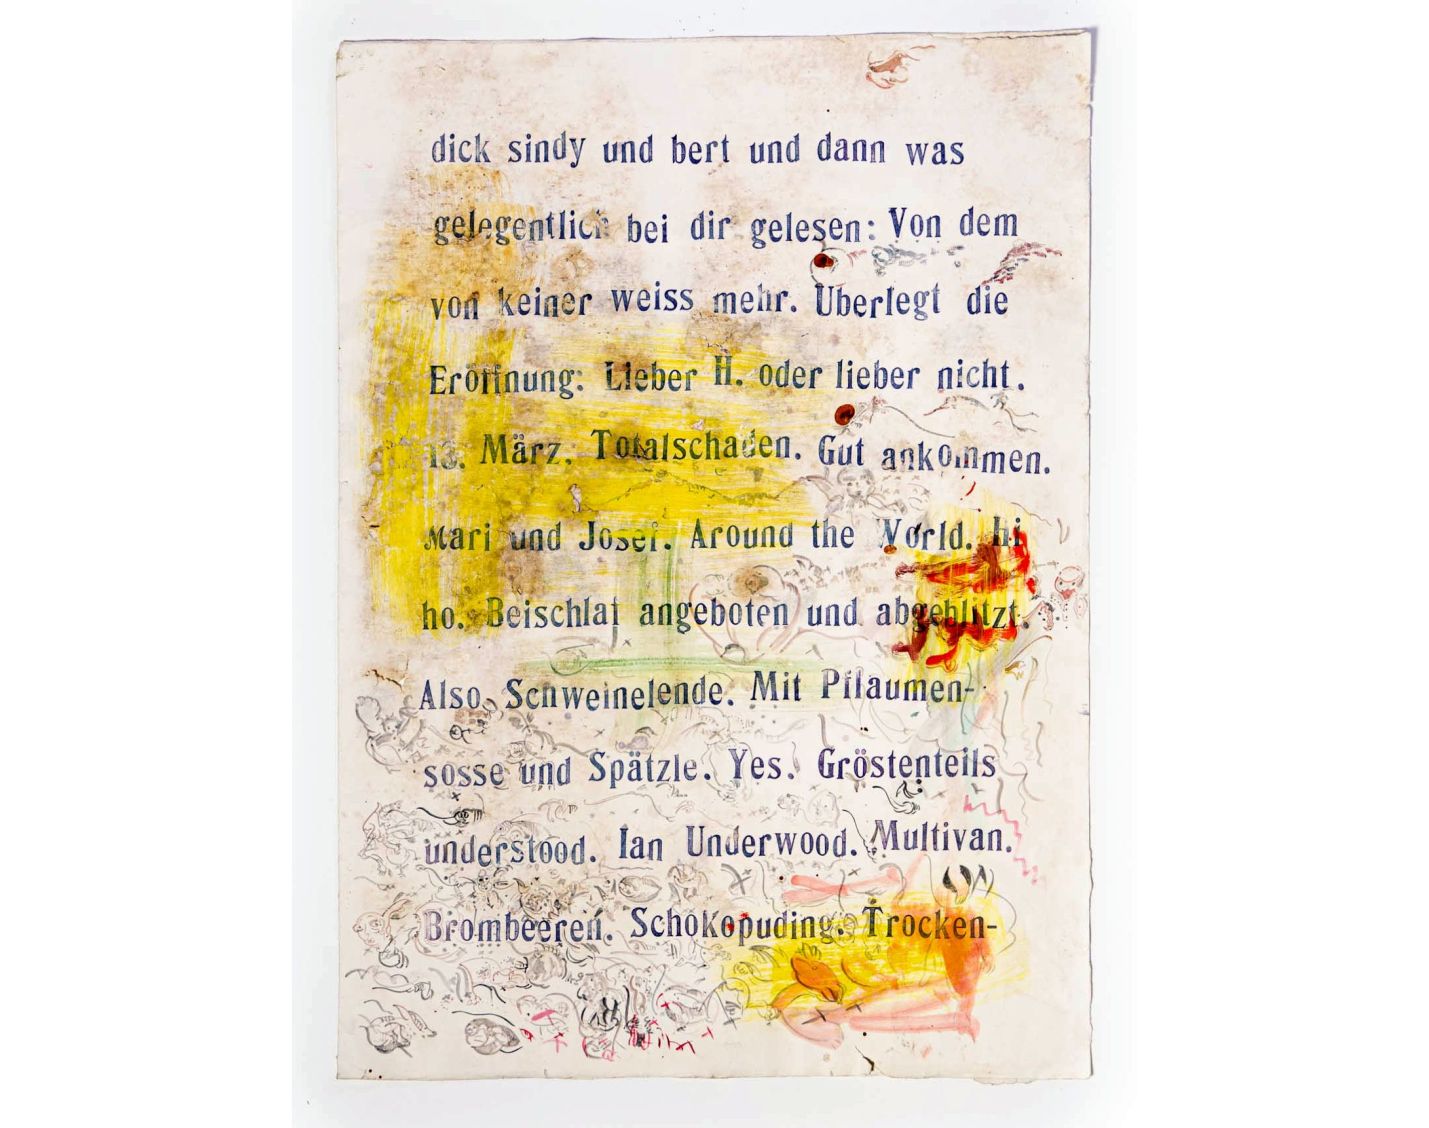 dick sindy und bert und dann was
gelegentlich bei dir gelesen: Von dem
von keiner weiss mehr. Uberlegt die
Eröffnung: Lieber H. oder lieber nicht.
13. März. Totalschaden. Gut ankommen.
Mari und Josef. Around the World. hi
ho. Beischlaf angeboten und abgeblitzt.
Also Schweinelende. Mit Pflaumen-
sosse und Spätzle. Yes. Gröstenteils
understood. Ian Underwood. Multivan.
Brombeeren. Schokopuding. Trocken-